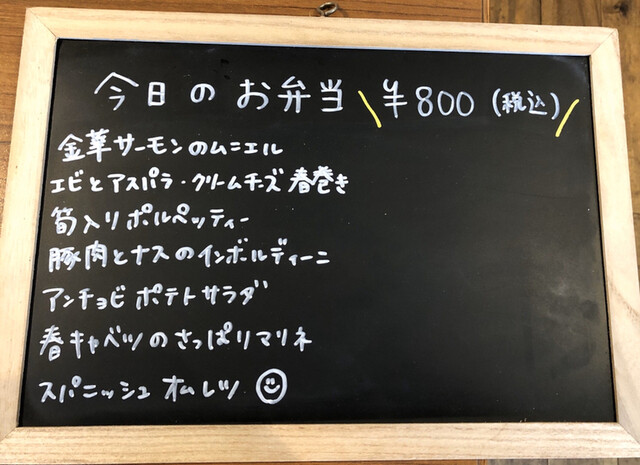 今日のお弁当 ¥800(税込)
金華サーモンのムニエル
エビとアスパラ・クリームチーズ春巻き
筍入りポルペッティー
豚肉とナスのインボルティーニ
アンチョビポテトサラダ
春キャベツのさっぱりマリネ
スパニッシュオムレツ